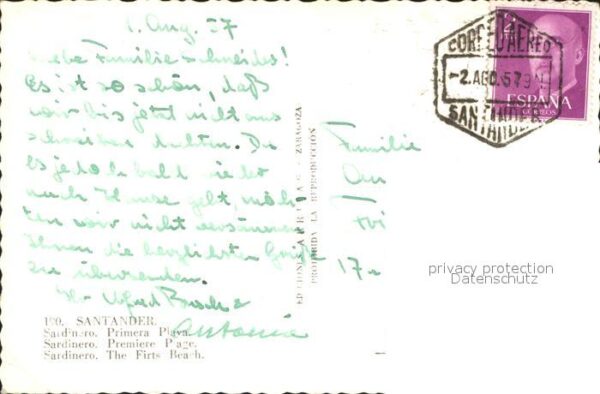 1. Aug. 57
Liebe Familie Schneider!
Es ist so schön, daß
wir bis jetzt nicht ans
schreiben dachten. Da
es jedoch bald wieder
nach Hause geht, möch-
ten wir nicht versäumen
Ihnen die herzlichsten Grüße
zu übersenden.
Ihr Alfred
Antonia
120. SANTANDER.
Sardinero. Primera Playa.
Sardinero. Premiere Plage.
Sardinero. The Firts Beach.
EDICIONES ARRIBAS - ZARAGOZA
PROHIBIDA LA REPRODUCCIÓN
Familie
17a
CORREO AEREO
-2.AGO.57
SANTANDER
ESPAÑA
CORREOS
privacy protection
Datenschutz